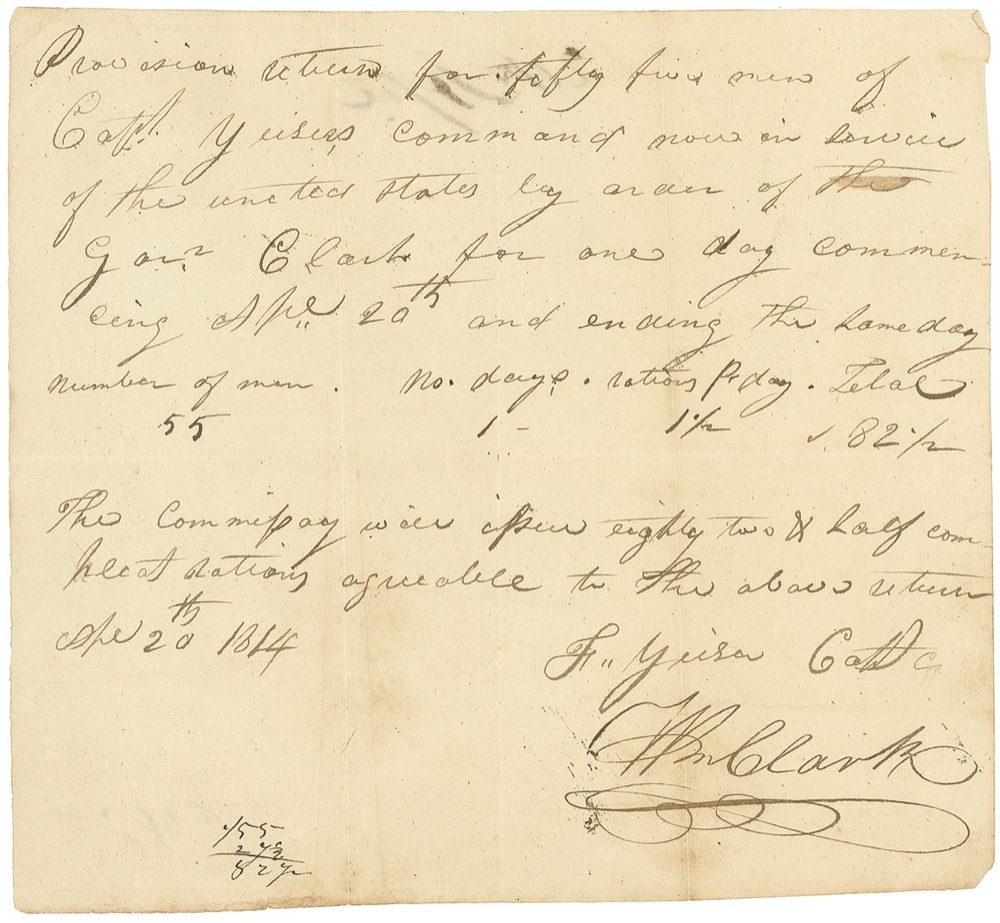 Provision return for fifty five men of
Capt. Yeisers command now in service
of the united states by order of the
Govr. Clark for one day commen-
cing Apl. 20th and ending the same day
number of men . No. days . rations Pr day . Total
55 1 - 1 1/2 82 1/2
The Commissary will issue eighty two & half com-
pleat rations agreeable to the above return
Apl 20th 1814
F. Yeiser Capt
Wm Clark
55
27 1/2
82 1/2